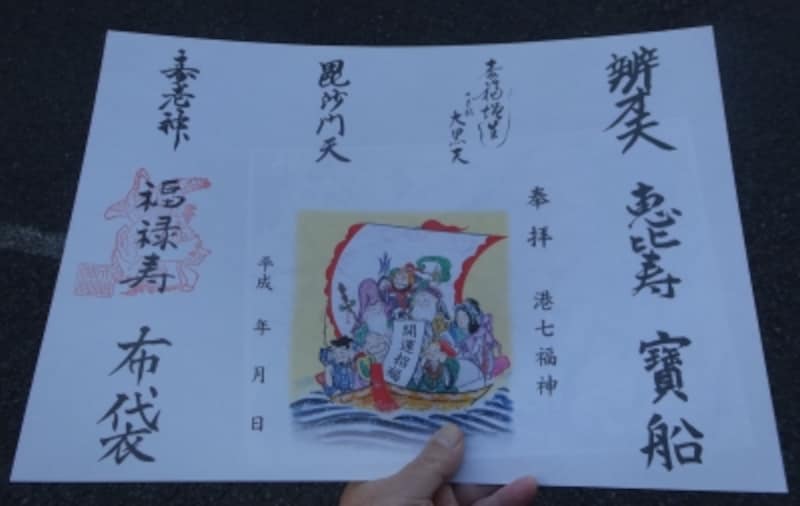 辨才天
恵比寿
寳船
大黒天
奉拝 港七福神
毘沙門天
開運招福
平成 年 月 日
寿老神
福禄寿
布袋